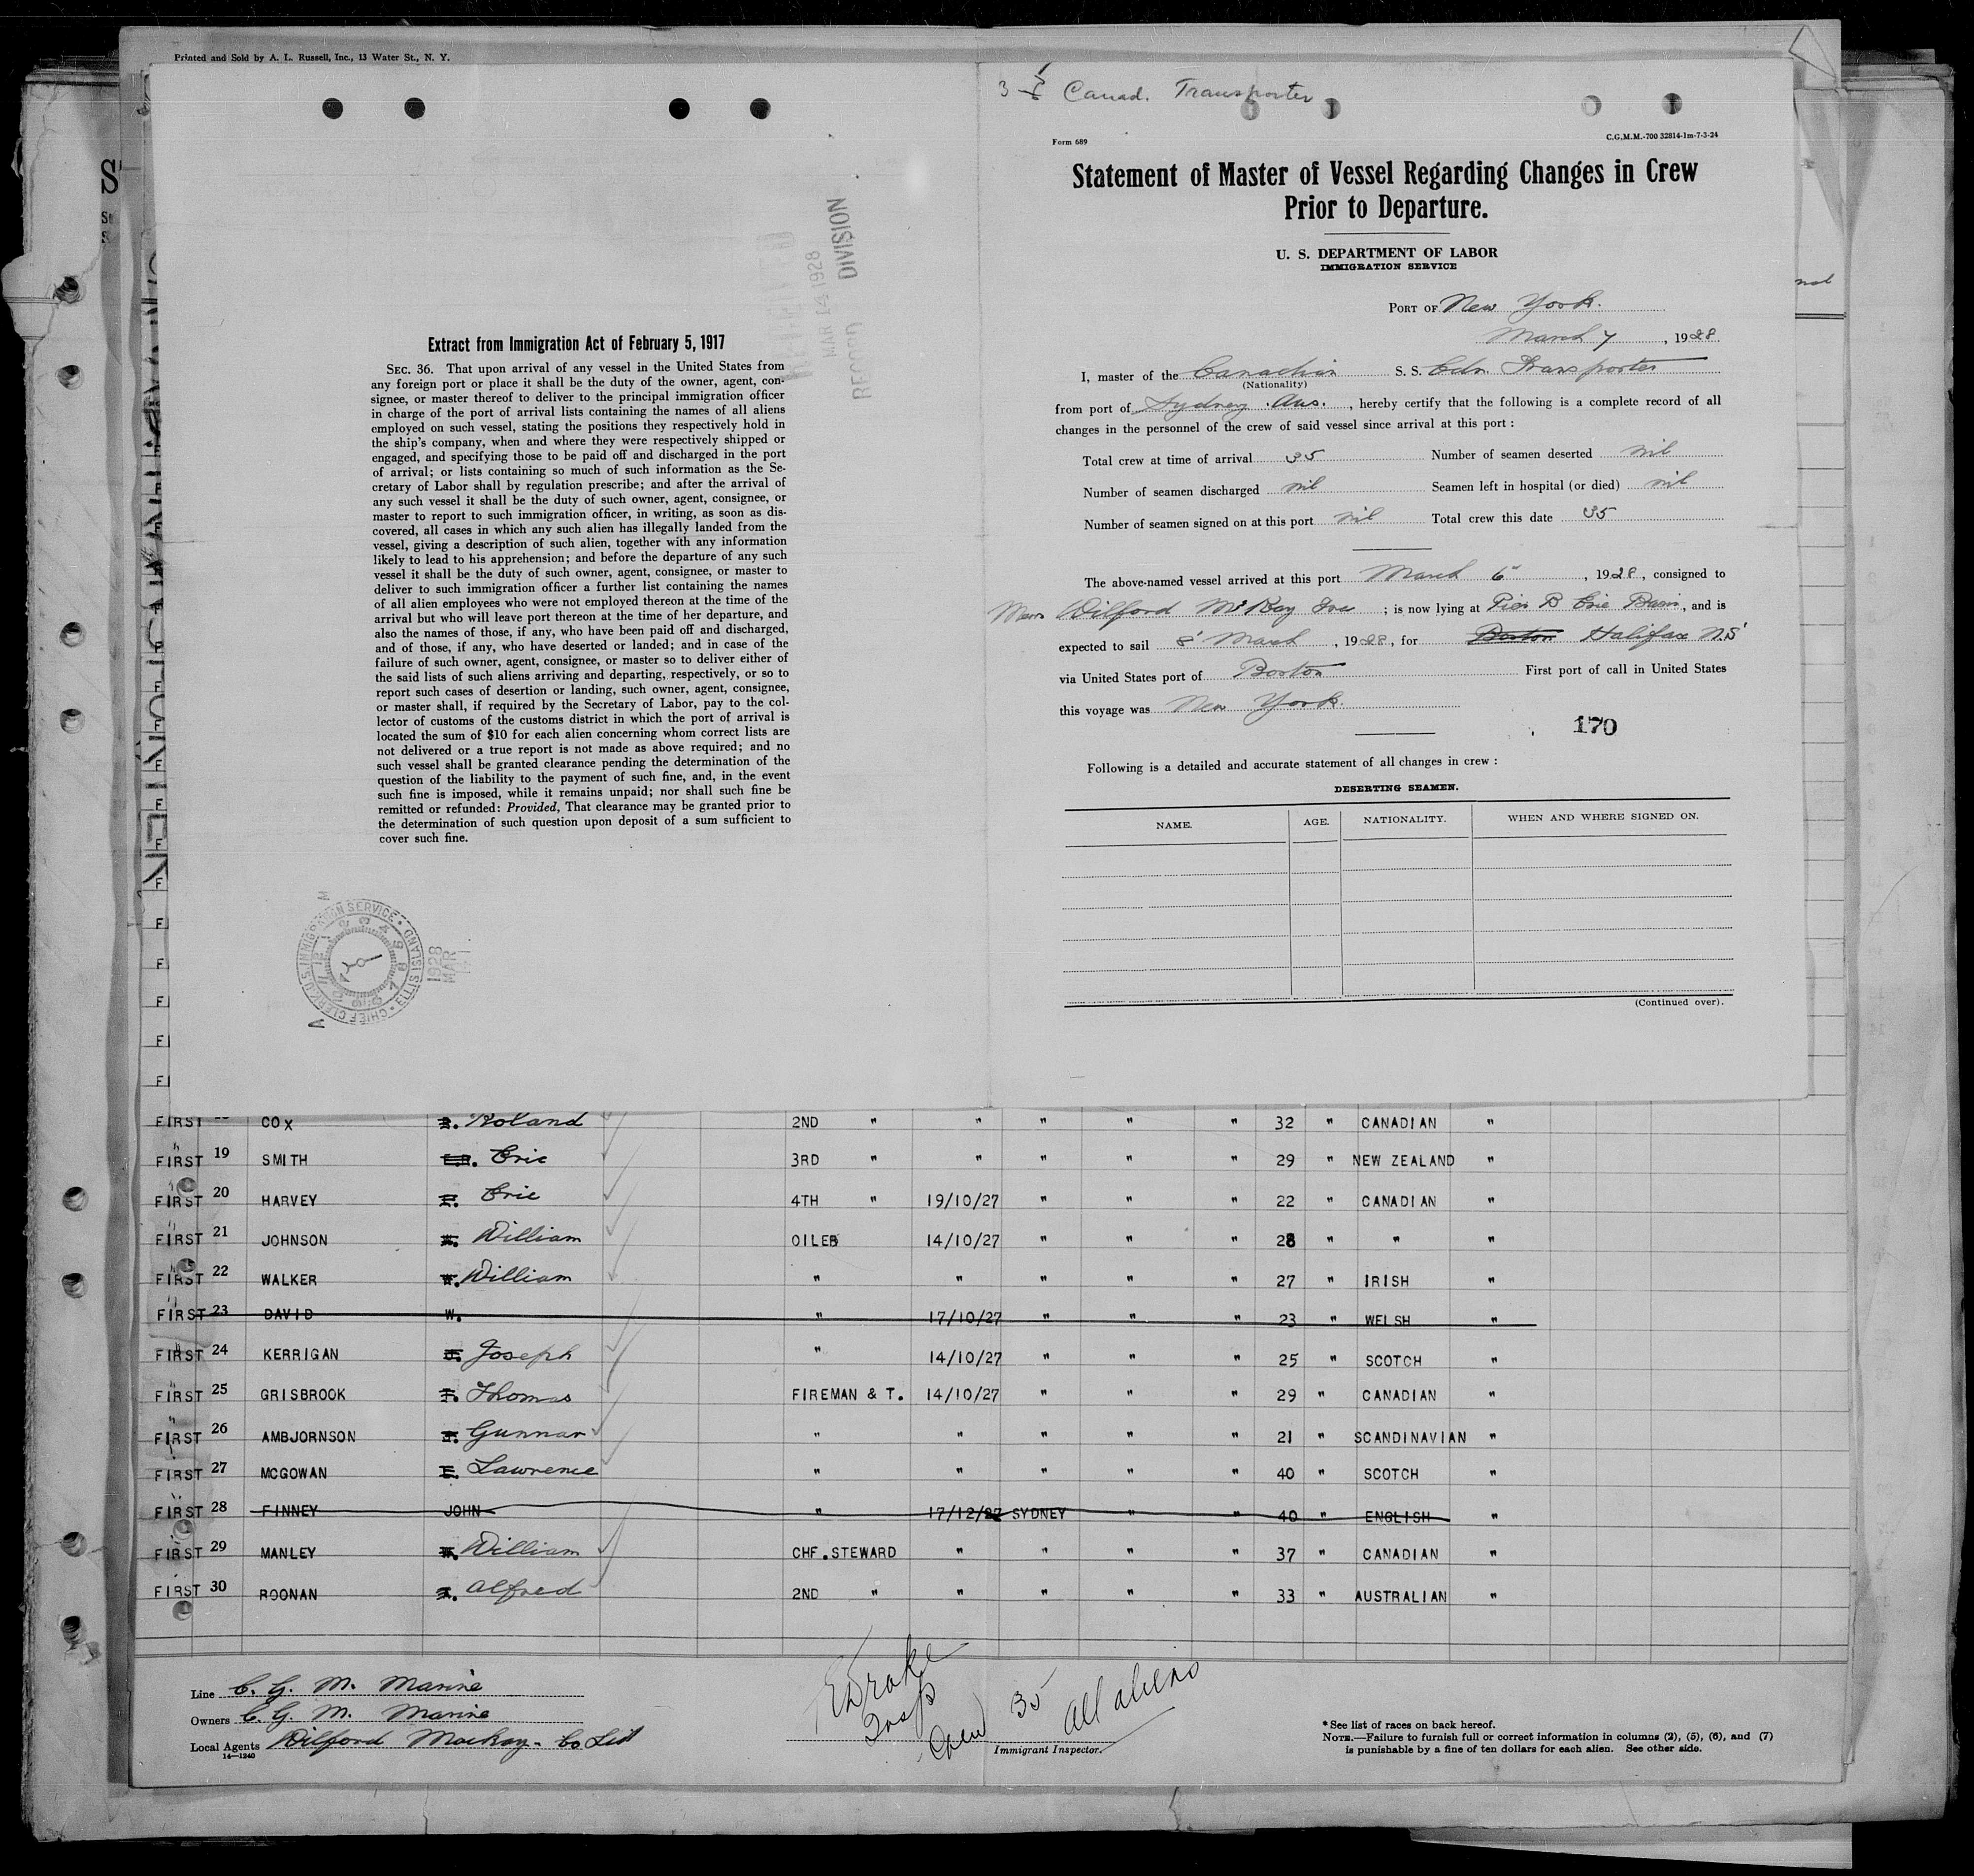 Printed and Sold by A. L. Russell, Inc., 13 Water St., N. Y.
Extract from Immigration Act of February 5, 1917
SEC. 36. That upon arrival of any vessel in the United States from
any foreign port or place it shall be the duty of the owner, agent, con-
signee, or master thereof to deliver to the principal immigration officer
in charge of the port of arrival lists containing the names of all aliens
employed on such vessel, stating the positions they respectively hold in
the ship's company, when and where they were respectively shipped or
engaged, and specifying those to be paid off and discharged in the port
of arrival; or lists containing so much of such information as the Se-
cretary of Labor shall by regulation prescribe; and after the arrival of
any such vessel it shall be the duty of such owner, agent, consignee, or
master to report to such immigration officer, in writing, as soon as dis-
covered, all cases in which any such alien has illegally landed from the
vessel, giving a description of such alien, together with any information
likely to lead to his apprehension; and before the departure of any such
vessel it shall be the duty of such owner, agent, consignee, or master to
deliver to such immigration officer a further list containing the names
of all alien employees who were not employed thereon at the time of the
arrival but who will leave port thereon at the time of her departure, and
also the names of those, if any, who have been paid off and discharged,
and of those, if any, who have deserted or landed; and in case of the
failure of such owner, agent, consignee, or master so to deliver either of
the said lists of such aliens arriving and departing, respectively, or so to
report such cases of desertion or landing, such owner, agent, consignee,
or master shall, if required by the Secretary of Labor, pay to the col-
lector of customs of the customs district in which the port of arrival is
located the sum of $10 for each alien concerning whom correct lists are
not delivered or a true report is not made as above required; and no
such vessel shall be granted clearance pending the determination of the
question of the liability to the payment of such fine, and, in the event
such fine is imposed, while it remains unpaid; nor shall such fine be
remitted or refunded: Provided, That clearance may be granted prior to
the determination of such question upon deposit of a sum sufficient to
cover such fine.
MAR 14 1928
RECORD DIVISION
CHIEF CLERK, U.S. IMMIGRATION SERVICE • ELLIS ISLAND •
1928
MAR
Canad. Transporter
Form 689
C.G.M.M.-700 32814-1m-7-3-24
Statement of Master of Vessel Regarding Changes in Crew
Prior to Departure.
U. S. DEPARTMENT OF LABOR
IMMIGRATION SERVICE
PORT OF New York.
March 7, 1928.
I, master of the Canadian S. S. Cdn Transporter
(Nationality)
from port of Sydney Aus., hereby certify that the following is a complete record of all
changes in the personnel of the crew of said vessel since arrival at this port :
Total crew at time of arrival 35 Number of seamen deserted nil
Number of seamen discharged nil Seamen left in hospital (or died) nil
Number of seamen signed on at this port nil Total crew this date 35
The above-named vessel arrived at this port March 5, 1928, consigned to
Wilford McKay Inc ; is now lying at Pier B Erie Basin, and is
expected to sail 8 March, 1928, for Boston Halifax N.S
via United States port of Boston First port of call in United States
this voyage was New York.
170
Following is a detailed and accurate statement of all changes in crew :
DESERTING SEAMEN.
NAME. AGE. NATIONALITY. WHEN AND WHERE SIGNED ON.
(Continued over).
FIRST COX Roland 2ND " " " " " 32 " CANADIAN "
FIRST 19 SMITH E.R. Eric 3RD " " " " " 29 " NEW ZEALAND "
FIRST 20 HARVEY E. Eric 4TH " 19/10/27 " " " 22 " CANADIAN "
FIRST 21 JOHNSON W. William OILER 14/10/27 " " " 28 " " "
FIRST 22 WALKER W. William " " " " " 27 " IRISH "
FIRST 23 DAVID W. " 17/10/27 " " " 23 " WELSH "
FIRST 24 KERRIGAN J. Joseph " 14/10/27 " " " 25 " SCOTCH "
FIRST 25 GRISBROOK T. Thomas FIREMAN & T. 14/10/27 " " " 29 " CANADIAN "
FIRST 26 AMBJORNSON Gunnar " " " " " 21 " SCANDINAVIAN "
FIRST 27 MCGOWAN Lawrence " " " " " 40 " SCOTCH "
FIRST 28 FINNEY JOHN " 17/12/27 SYDNEY " " 40 " ENGLISH "
FIRST 29 MANLEY W. William CHF. STEWARD " " " " 37 " CANADIAN "
FIRST 30 ROONAN A. Alfred 2ND " " " " " 33 " AUSTRALIAN "
Line C. G. M. Marine
Owners C. G. M. Marine
Local Agents Wilford Mackay - Co Ltd
14—1240
Drake
Insp
Crew 35 all aliens
Immigrant Inspector.
* See list of races on back hereof.
NOTE.—Failure to furnish full or correct information in columns (2), (5), (6), and (7)
is punishable by a fine of ten dollars for each alien. See other side.